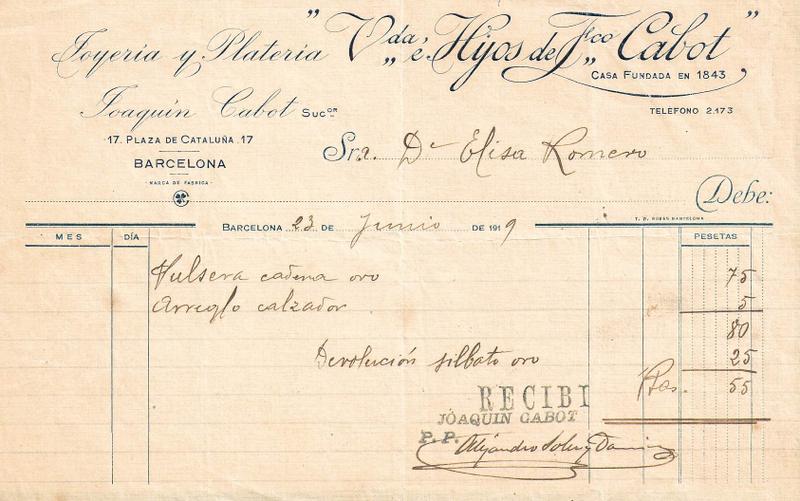 Joyeria y Plateria "Vda é Hijos de Fco Cabot"
CASA FUNDADA EN 1843
Joaquin Cabot Sucor
TELEFONO 2.173
17. PLAZA DE CATALUÑA. 17
BARCELONA
Sra. Da Elisa Romero
MARCA DE FABRICA
Debe:
BARCELONA 23 DE Junio DE 1919
MES DÍA PESETAS
Pulsera cadena oro 75
Arreglo calzador 5
80
Devolución silbato oro 25
Ptas. 55
RECIBI
JOAQUIN CABOT
P. P.
Alejandro Soler y